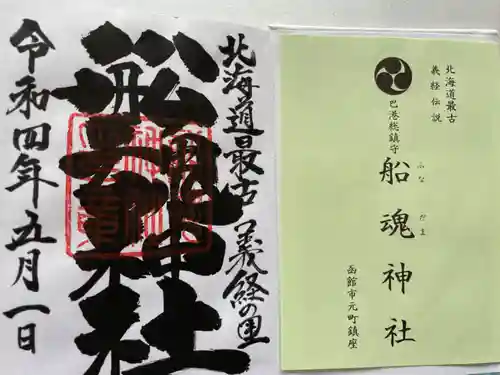 北海道最古
義経伝説
巴港総鎮守
ふなだま
船魂神社
函館市元町鎮座
北海道最古 義経の里
船魂神社
令和四年五月一日